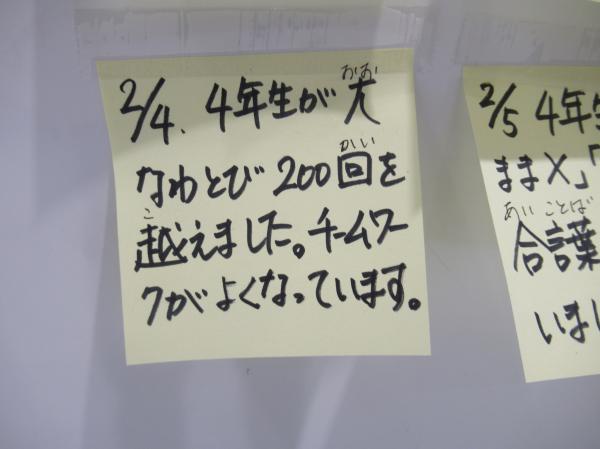 2/4. 4年生が大
おお
なわとび200回を
かい
越えました。チームワー
こ
クがよくなっています。
2/5 4年生
ままX」「
合言葉
あい ことば
いまし